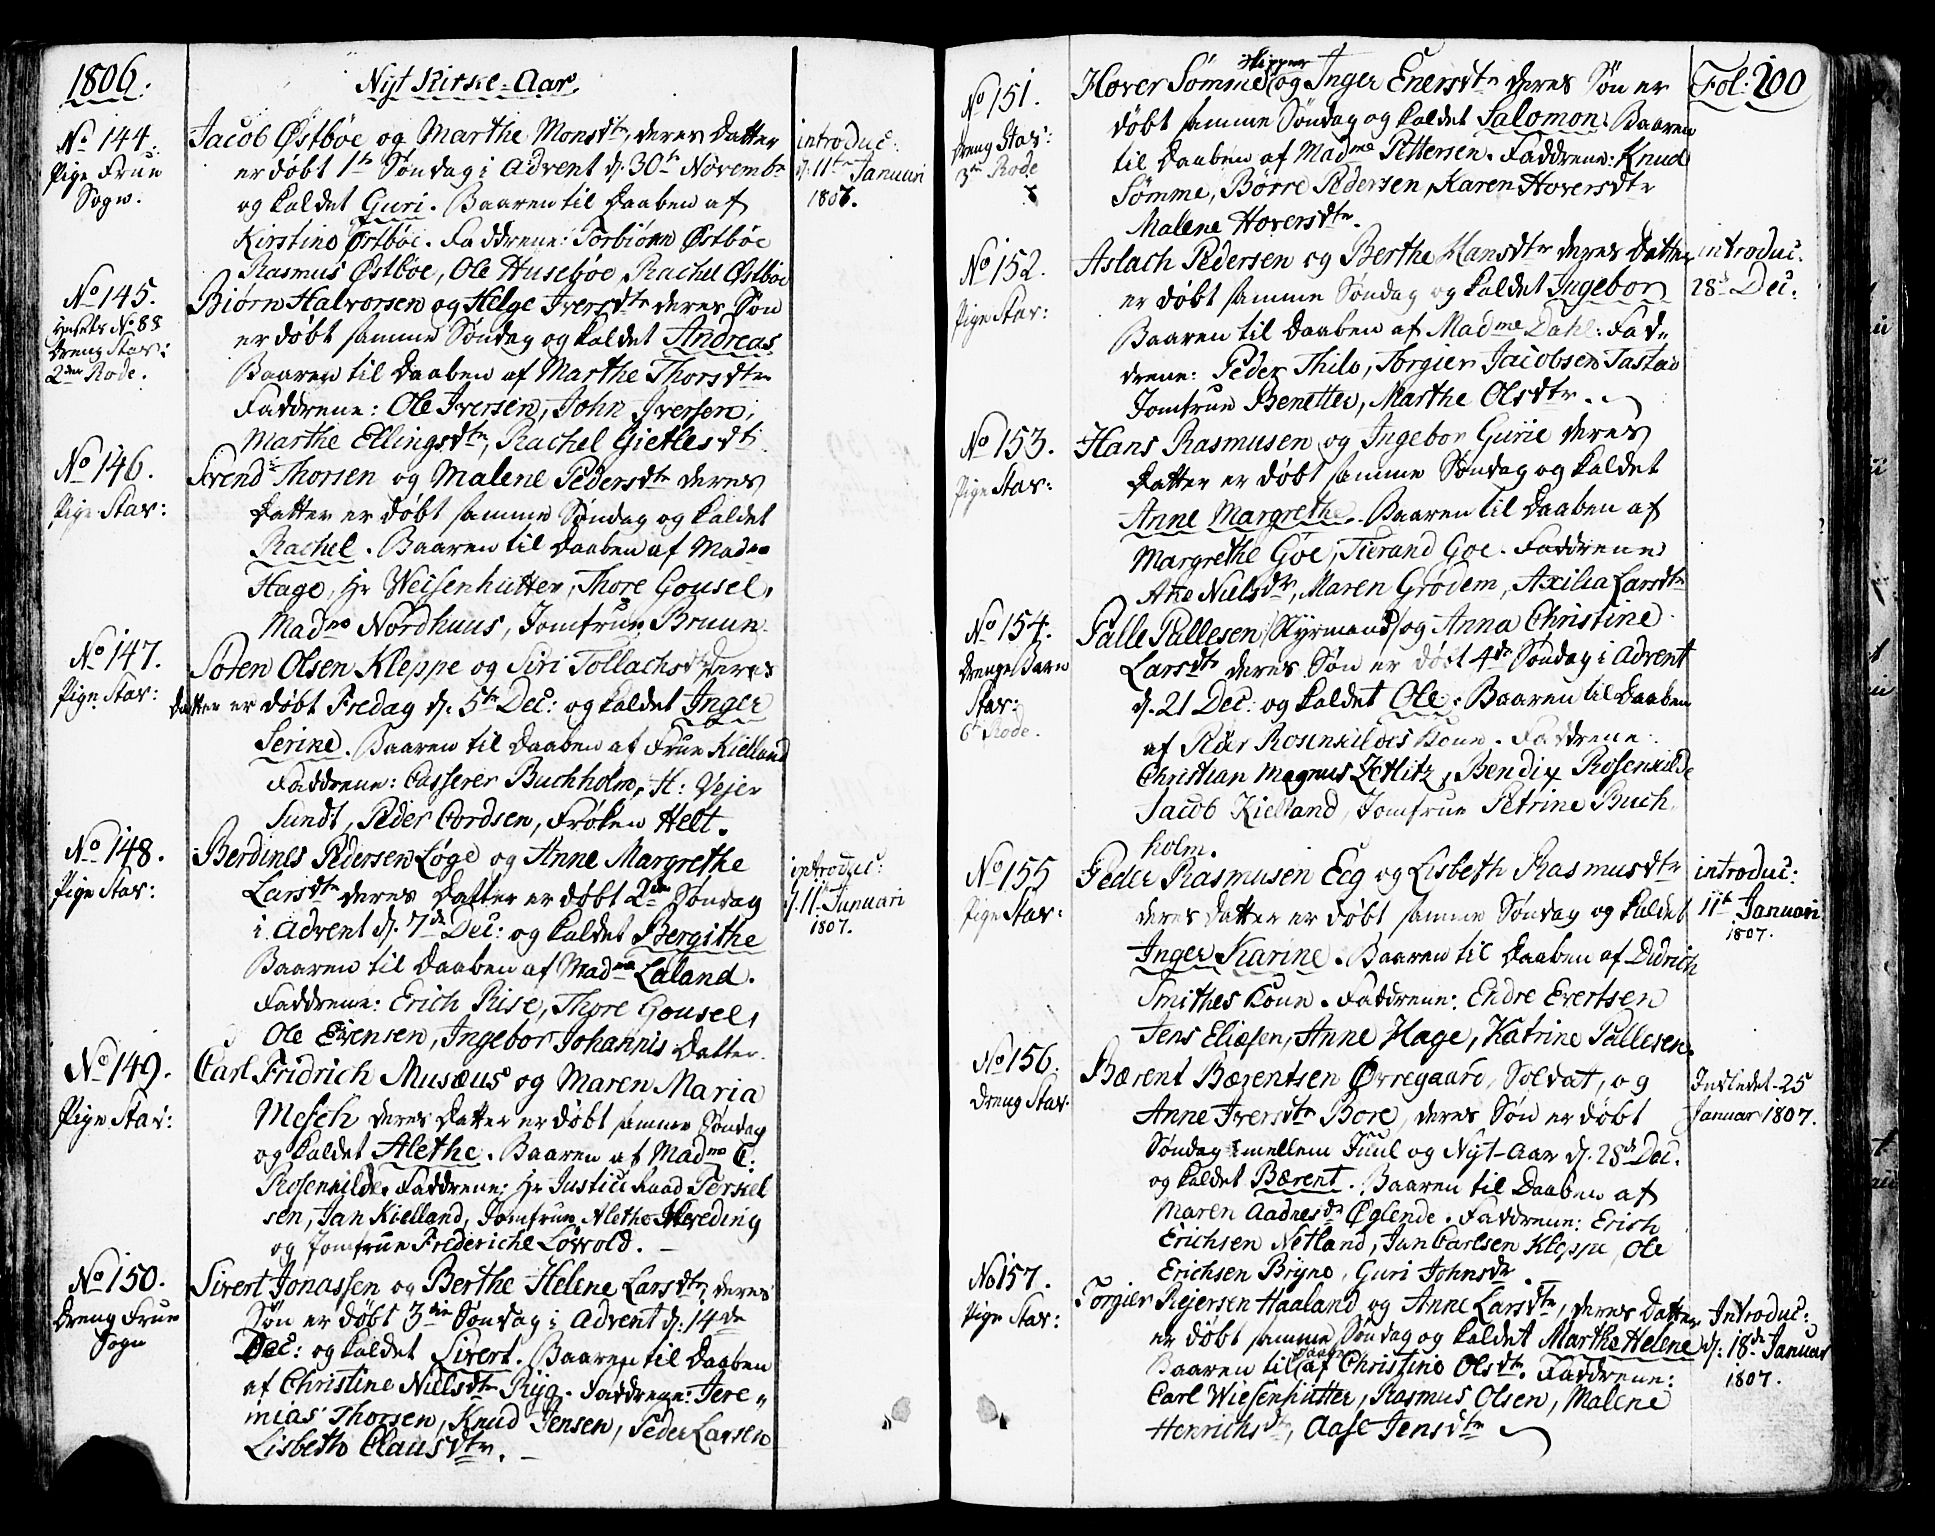 1806.
Nyt Kirke-Aar.
No 144.
Pige Frue
Sogn.
Jacob Østbøe og Marthe Monsdtr, deres Datter
er døbt 1te Søndag i Advent d. 30te Novembr
og kaldet Guri. Baaren til Daaben af
Kirstine Østbøe. Faddrene: Torbiörn Østbøe
Rasmus Østboe, Ole Husebøe, Rachel Østböe
introduc:
d. 11te Januari
1807.
No 145.
No 88
Dreng Stav:
2den Rode.
Biørn Halvorsen og Helge Iversdtr deres Søn
er døbt samme Søndag og kaldet Andreas
Baaren til Daaben af Marthe Thorsdtr
Faddrene: Ole Iversen, John Iversen,
Marthe Ellingsdtr, Rachel Gietlesdt:
No 146.
Pige Stav:
Svend Thorsen og Malene Pedersdtr deres
Datter er døbt samme Søndag og kaldet
Rachel. Baaren til Daaben af Madme
Hage, Hr Weisenhutter, Thore Gousel,
Madme Nordhuus, Jomfrue Bruun.
No 147.
Pige Stav:
Søren Olsen Kleppe og Siri Tollachsdtr deres
Datter er døbt Fredag d. 5te Dec: og kaldet Inger
Serine. Baaren til Daaben af Frue Kielland
Faddrene: Casserer Buchholm, H: Vejer
Sundt, Peder Cordsen, Frøken Helt.
No 148.
Pige Stav:
Berdines Pedersen Løge og Anne Margrethe
Larsdtr deres Datter er døbt 2de Søndag
i Advent d. 7de Dec: og kaldet Bergithe
Baaren til Daaben af Madme Laland.
Faddrene: Erich Rise, Thore Gousel,
Ole Evensen, Ingebor Johannis Datter.
introduc:
d. 11te Januari
1807.
No 149.
Pige Stav:
Carl Fridrich Musæus og Maren Maria
Mesch deres Datter er døbt samme Søndag
og kaldet Alethe. Baaren af Madme C:
Rosenkilde. Faddrene: Hr Justice Raad Torkel
sen, Jan Kielland, Jomfrue Alethe
og Jomfrue Frederiche Løwold.
No 150.
Dreng Frue
Sogn
Sivert Jonassen og Berthe Helene Larsdtr, deres
Søn er døbt 3die Søndag i Advent d: 14de
Dec: og kaldet Sivert. Baaren til Daaben
af Christine Nielsdtr Ryg. Faddrene: Jere„
mias Thorsen, Knud Jensen, Peder Larsen
Lisbeth Clausdtr.
Fol: 200
No 151.
Dreng Stav:
3die Rode
skipper
Hover Sömme og Inger Enersdtr deres Søn er
døbt samme Søndag og kaldet Salomon. Baaren
til Daaben af Madme Pettersen. Faddrene: Knud
Sömme, Børre Pedersen, Karen Hoversdtr
Malene Hoversdtr.
No 152.
Pige Stav:
Aslach Pedersen og Berthe Hansdtr deres Datter
er døbt samme Søndag og kaldet Ingebor
Baaren til Daaben af Madme Dahl. Fad„
drene: Peder Thilo, Torgier Jacobsen Tastad
Jomfrue Benetter, Marthe Olsdtr.
introduc.
28de Dec:
No 153.
Pige Stav:
Hans Rasmusen og Ingebor Gurie deres
Datter er døbt samme Søndag og kaldet
Anne Margrethe. Baaren til Daaben af
Margrethe Goe, Tierand Goe. Faddrene
Ane Nielsdtr, Maren Grödem, Axilia Larsdtr
No 154.
Drenge Barn
Stav:
6te Rode.
Palle Pallesen /Styrmand/ og Anna Christine
Larsdtr deres Søn er døbt 4de Søndag i Advent
d. 21 Dec: og kaldet Ole. Baaren til Daaben
af Peder Rosenkildes Kone. Faddrene:
Christian Magnus Zetlitz, Bendix Rosenkilde
Jacob Kielland, Jomfrue Petrine Buch„
holm.
No 155
Pige Stav:
Peder Rasmusen Eeg og Lisbeth Rasmusdtr
deres Datter er døbt samme Søndag og kaldet
Inger Karine. Baaren til Daaben af Didrich
Smithes Kone. Faddrene: Endre Evertsen
Jens Eliesen, Anne Hage, Katrine Pallesen.
introduc:
11te Januari
1807.
No 156.
Dreng Stav.
Bærent Bærentsen Ørregaard, Soldat, og
Anne Iversdtr Bore, deres Søn er døbt
Søndag imellem Juul og Nyt-Aar d. 28de Dec.
og kaldet Bærent. Baaren til Daaben af
Maren Aadnesdtr Öglende. Faddrene: Erich
Erichsen Netland, Jan Carlsen Kleppe, Ole
Erichsen Bryne, Guri Johnsdtr.
Indledet 25
Januar 1807.
No 157.
Pige Stav:
Torgier Rejersen Haaland og Anne Larsdtr, deres Datter
er døbt samme Søndag og kaldet Marthe Helene
Baaren til Daaben af Christine Olsdtr. Faddrene:
Carl Wiesenhütter, Rasmus Olsen, Malene
Henrichsdtr, Aase Jensdtr
Introduc:
d: 18de Januar
1807.